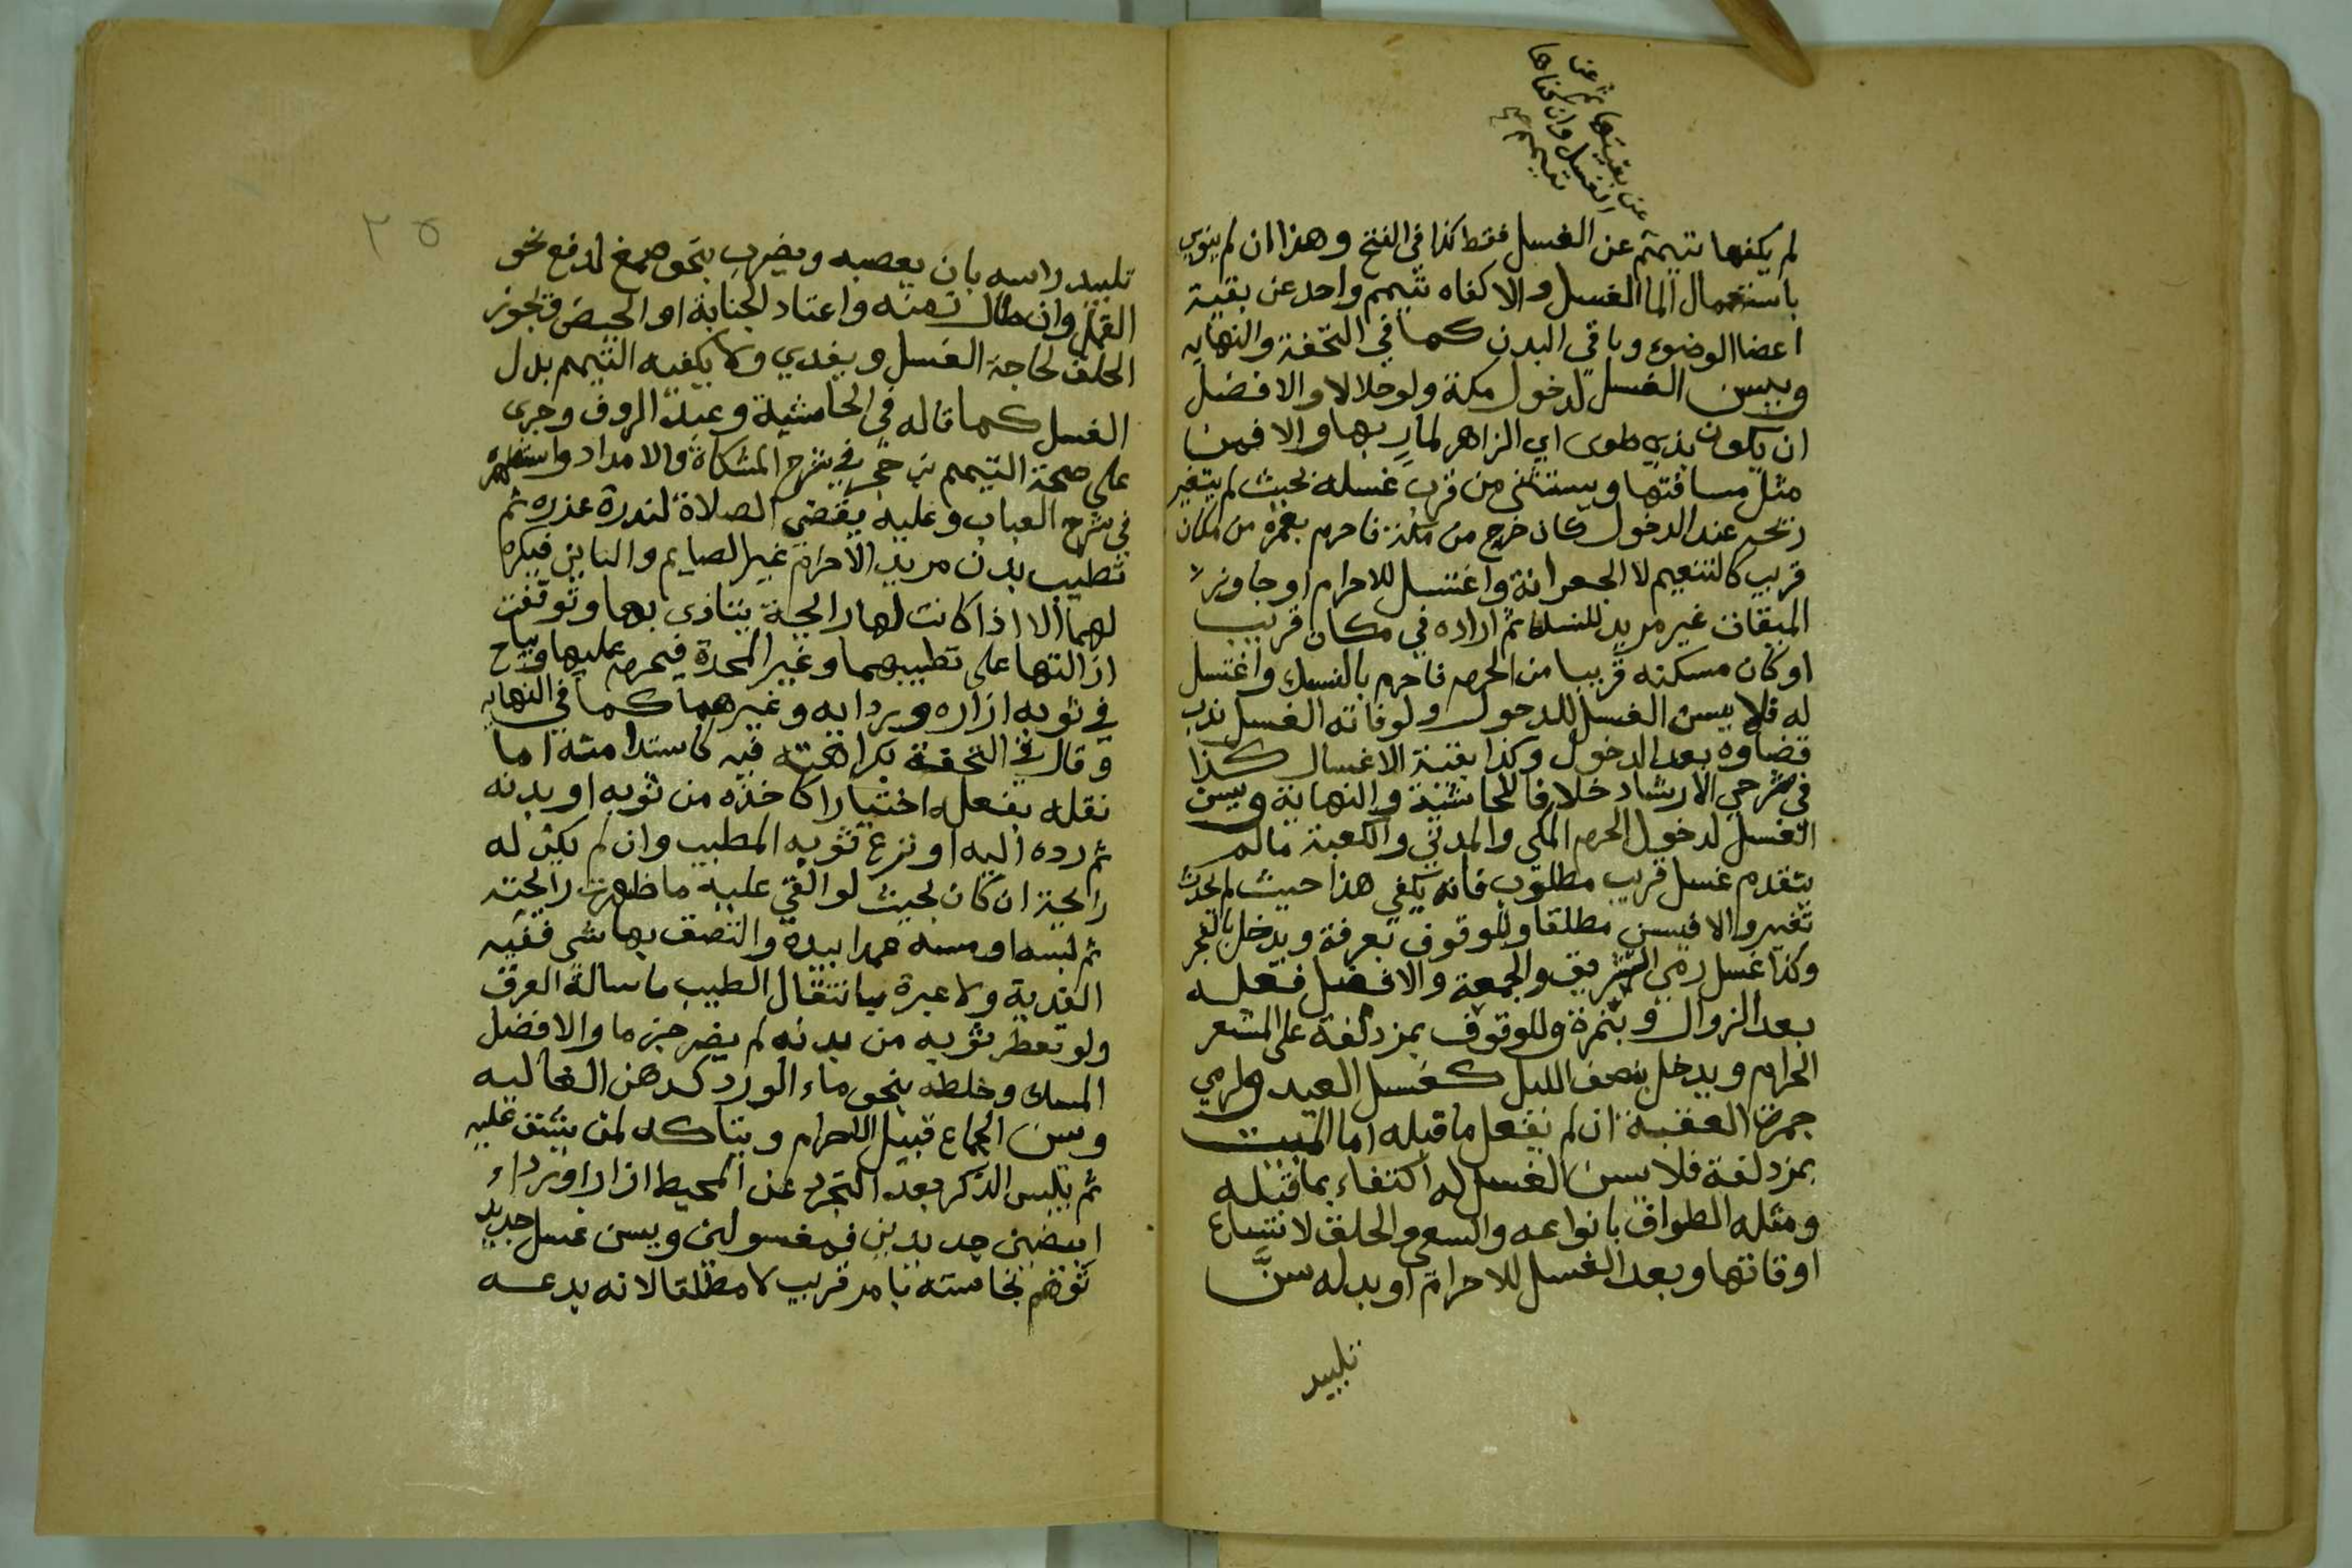 عن بقيتها ثم عن
الغسل وان كفاها
تيمم
لم يكفها تيمم عن الغسل فقط كذا في الفتح وهذا ان لم ينوي
باستعمال الما الغسل والا كفاه تيمم واحد عن بقية
اعضا الوضوء وباقي البدن كما في التحفة والنهايه
ويسن الغسل لدخول مكة ولو حلالا والافضل
ان يكون بذي طوى اي الزاهر لمار بها والا فمن
مثل مسافتها ويستثنى من قرب غسله بحيث لم يتغير
ريحه عند الدخول كان خرج من مكة فاحرم بعمرة من مكان
قريب كالتنعيم لا الجعرانة واغتسل للاحرام او جاوز
الميقات غير مريد للنسك ثم اراده في مكان قريب
او كان مسكنه قريبا من الحرم فاحرم بالنسك واغتسل
له فلا يسن الغسل للدخول ولو فاته الغسل ندب
قضاوه بعد الدخول وكذا بقية الاغسال كذا
في شرحي الارشاد خلافا للحاشية والنهاية ويسن
الغسل لدخول الحرم المكي والمدني والكعبة مالم
يتقدم غسل قريب مطلوب فانه يكفي هذا حيث لم يحدث
تغير والا فيسن مطلقا وللوقوف بعرفة ويدخل بالفجر
وكذا غسل رمي التشريق والجمعة والافضل فعله
بعد الزوال وبنمرة وللوقوف بمزدلفة على المشعر
الحرام ويدخل بنصف الليل كغسل العيد ولرمي
جمرة العقبة ان لم يفعل ما قبله اما المبيت
بمزدلفة فلا يسن الغسل له اكتفاء بما قبله
ومثله الطواف بانواعه والسعي والحلق لاتساع
اوقاتها وبعد الغسل للاحرام او بدله سنَّ
تلبيد
٣٥
تلبيد راسه بان يعصبه ويضرب بنحو صمغ لدفع نحو
القمل وان طال زمنه واعتاد الجنابة او الحيض فيجوز
الحلق لحاجة الغسل ويفدي ولا يكفيه التيمم بدل
الغسل كما قاله في الحاشية وعبد الروف وجرى
على صحة التيمم بن حجر في شرح المشكاة والامداد واستظهره
في شرح العباب وعليه يقضي الصلاة لندرة عذره ثم
تطيب بدن مريد الاحرام غير الصايم والباين فيكره
لهما الا اذا كانت لها رايحة يتاذى بها وتوقفت
ازالتها على تطيبهما وغير المحدة فيحرم عليها ويباح
في ثوبه ازاره وردايه وغيرهما كما في النهايه
وقال في التحفة بكراهته فيه كاستدامته اما
نقله بفعله اختيارا كاخذه من ثوبه او بدنه
ثم رده اليه او نزع ثوبه المطيب وان لم يكن له
رايحة ان كان بحيث لو القي عليه ما ظهرت رايحته
ثم لبسه او مسه عمدا بيده والتصق بها شي ففيه
الفدية ولا عبرة بانتقال الطيب باسالة العرق
ولو تعطر ثوبه من بدنه لم يضر جزما والافضل
المسك وخلطه بنحو ماء الورد كدهن الغاليه
وسن الجماع قبيل الاحرام ويتاكد لمن يشق عليه
ثم يلبس الذكر بعد التجرد عن المحيط ازارا ورداء
ابيضين جديدين فمغسولين ويسن غسل جديد
توهم نجاسته بامر قريب لا مطلقا لانه بدعه